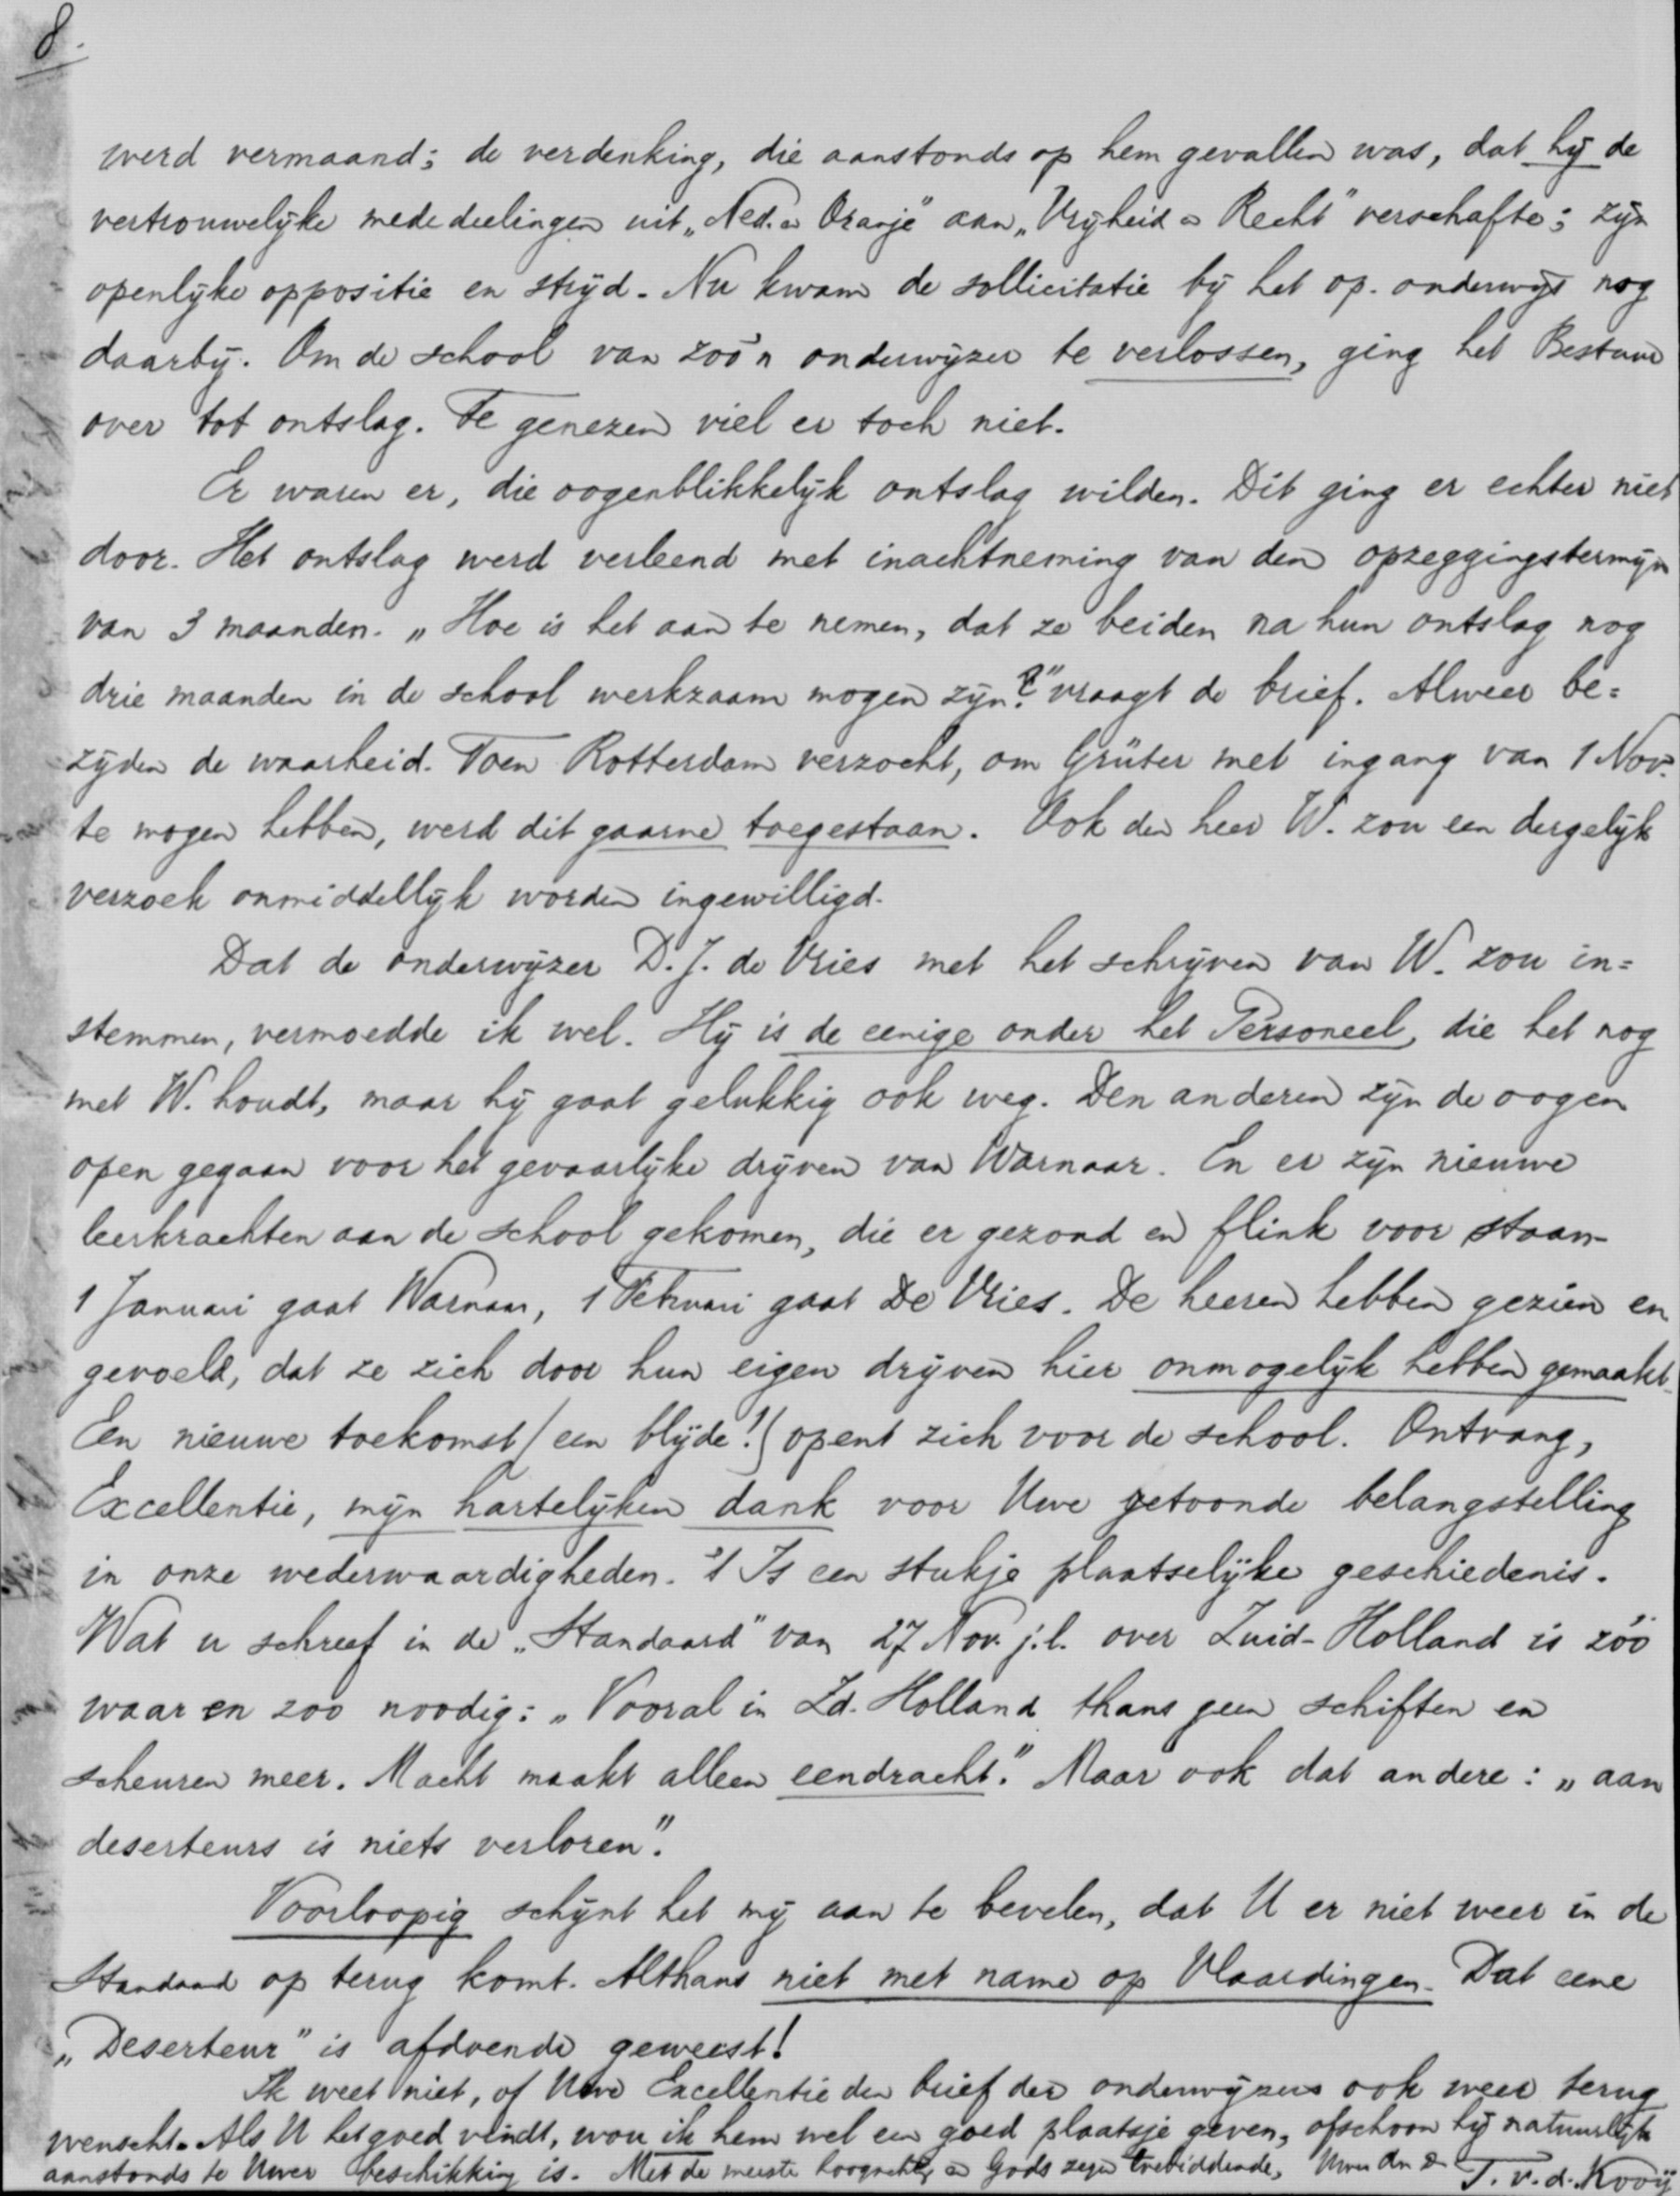 8.
werd vermaand; de verdenking, die aanstonds op hem gevallen was, dat hij de
vertrouwelijke mededeelingen uit „Ned. en Oranje" aan „Vrijheid en Recht" verschafte; zijn
openlijke oppositie en strijd. Nu kwam de sollicitatie bij het op. onderwijs nog
daarbij. Om de school van zoo'n onderwijzer te verlossen, ging het Bestuur
over tot ontslag. Te genezen viel er toch niet.
Er waren er, die oogenblikkelijk ontslag wilden. Dit ging er echter niet
door. Het ontslag werd verleend met inachtneming van den opzeggingstermijn
van 3 maanden. „Hoe is het aan te nemen, dat ze beiden na hun ontslag nog
drie maanden in de school werkzaam mogen zijn?" vraagt de brief. Alweer be=
zijden de waarheid. Toen Rotterdam verzocht, om Grüter met ingang van 1 Nov.
te mogen hebben, werd dit gaarne toegestaan. Ook den heer W. zou een dergelijk
verzoek onmiddellijk worden ingewilligd.
Dat de onderwijzer D. J. de Vries met het schrijven van W. zou in=
stemmen, vermoedde ik wel. Hij is de eenige onder het Personeel, die het nog
met W. houdt, maar hij gaat gelukkig ook weg. Den anderen zijn de oogen
open gegaan voor het gevaarlijke drijven van Warnaar. En er zijn nieuwe
leerkrachten aan de school gekomen, die er gezond en flink voor staan.
1 Januari gaat Warnaar, 1 Februari gaat De Vries. De heeren hebben gezien en
gevoeld, dat ze zich door hun eigen drijven hier onmogelijk hebben gemaakt.
Een nieuwe toekomst (een blijde!) opent zich voor de school. Ontvang,
Excellentie, mijn hartelijken dank voor Uwe getoonde belangstelling
in onze wederwaardigheden. 't Is een stukje plaatselijke geschiedenis.
Wat u schreef in de „Standaard" van 27 Nov. j.l. over Zuid-Holland is zóó
waar en zoo noodig: „Vooral in Zd. Holland thans geen schiften en
scheuren meer. Macht maakt alleen eendracht." Maar ook dat andere: „aan
deserteurs is niets verloren".
Voorloopig schijnt het mij aan te bevelen, dat U er niet weer in de
Standaard op terug komt. Althans niet met name op Vlaardingen. Dat eene
„Deserteur" is afdoende geweest!
Ik weet niet, of Uwe Excellentie den brief der onderwijzers ook weer terug
wenscht. Als U het goed vindt, wou ik hem wel een goed plaatsje geven, ofschoon hij natuurlijk
aanstonds te Uwer beschikking is. Met de meeste hoogachtg en Gods zegen toebiddende, Uwe T. v. d. Kooij